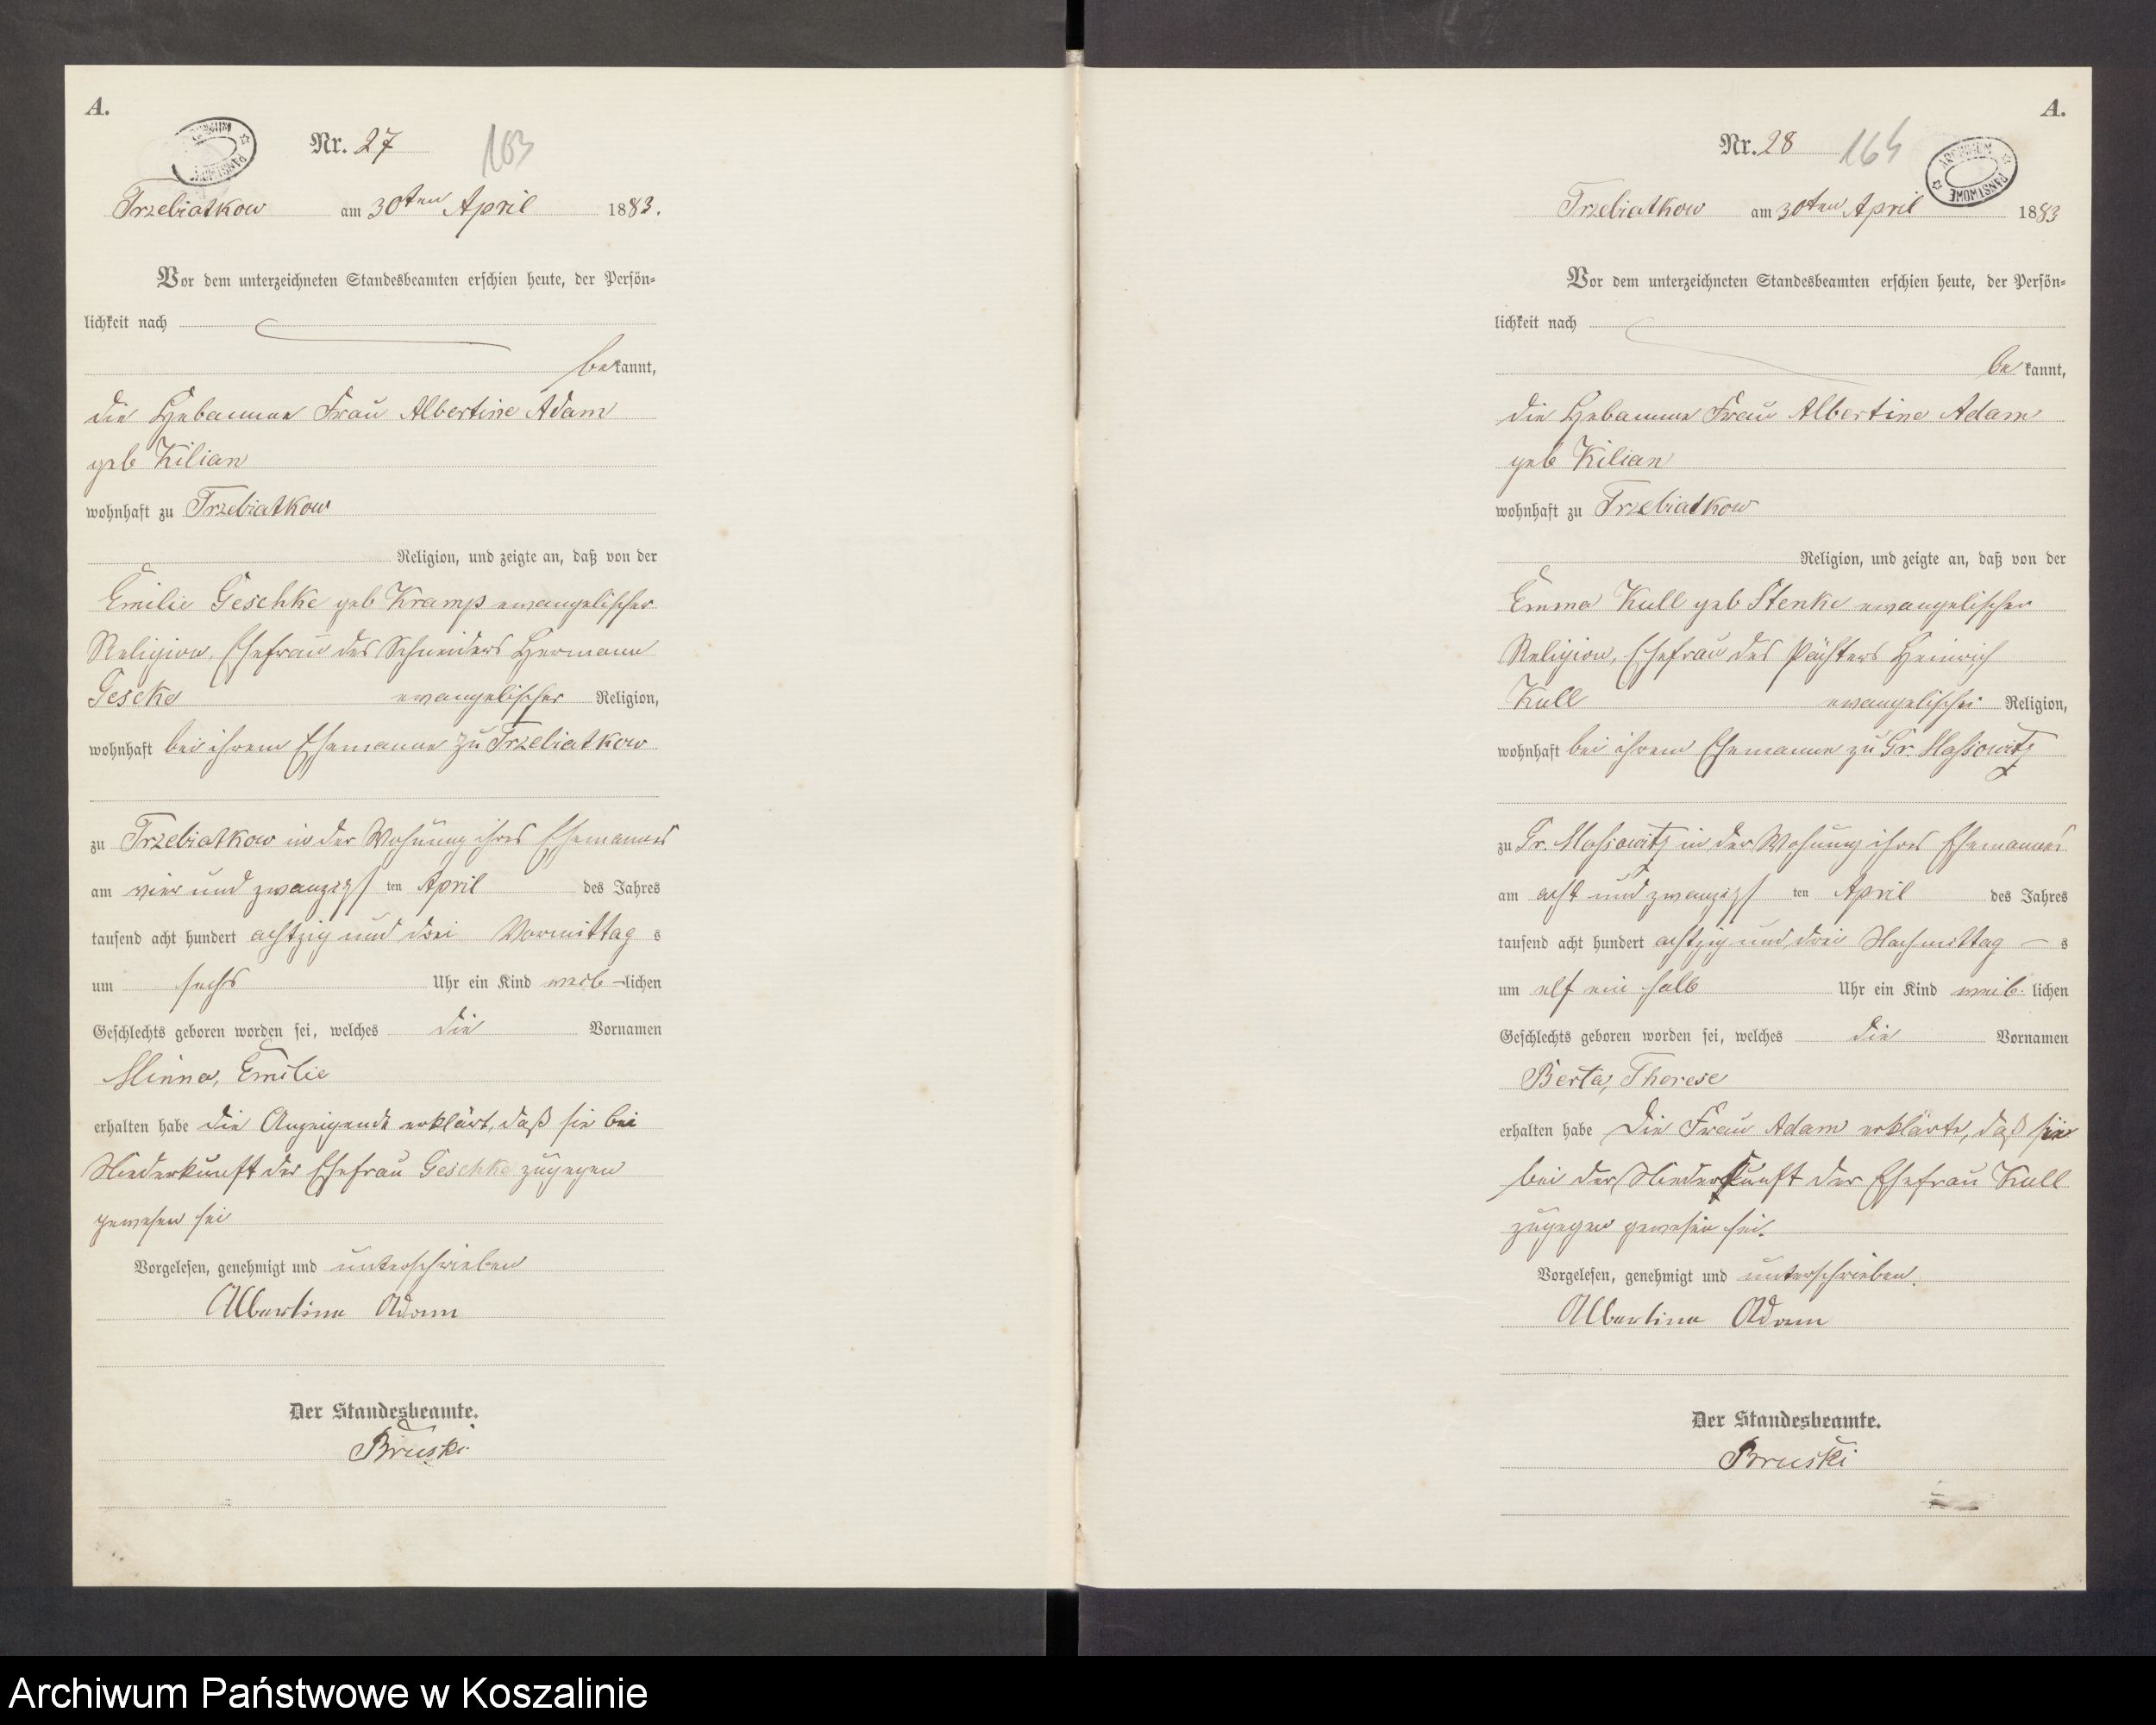 A.
Nr. 27
163
Trzebiatkow am 30ten April 1883.
Vor dem unterzeichneten Standesbeamten erschien heute, der Persön-
lichkeit nach
bekannt,
die Hebamme Frau Albertine Adam
geb Kilian
wohnhaft zu Trzebiatkow
Religion, und zeigte an, daß von der
Emilie Geschke geb Kramp evangelischer
Religion, Ehefrau des Schneiders Hermann
Gescke evangelischer Religion,
wohnhaft bei ihrem Ehemanne zu Trzebiatkow
zu Trzebiatkow in der Wohnung ihres Ehemannes
am vier und zwanzigs ten April des Jahres
tausend acht hundert achtzig und drei Vormittag s
um sechs Uhr ein Kind weib-lichen
Geschlechts geboren worden sei, welches die Vornamen
Minna, Emilie
erhalten habe die Anzeigende erklärt, daß sie bei
Niederkunft der Ehefrau Geschke zugegen
gewesen sei
Vorgelesen, genehmigt und unterschrieben
Albertine Adam
Der Standesbeamte.
Bruski
A.
Nr. 28
164
ARCHIWUM PAŃSTWOWE
Trzebiatkow am 30ten April 1883
Vor dem unterzeichneten Standesbeamten erschien heute, der Persön-
lichkeit nach
be kannt,
die Hebamme Frau Albertine Adam
geb Kilian
wohnhaft zu Trzebiatkow
Religion, und zeigte an, daß von der
Emma Kull geb Stenke evangelischer
Religion, Ehefrau des Pächters Heinrich
Kull evangelischer Religion,
wohnhaft bei ihrem Ehemanne zu Gr. Massowitz
zu Gr. Massowitz in der Wohnung ihres Ehemannes
am acht und zwanzigs ten April des Jahres
tausend acht hundert achtzig und drei Nachmittag – s
um elf ein halb Uhr ein Kind weib. lichen
Geschlechts geboren worden sei, welches die Vornamen
Berta, Therese
erhalten habe Die Frau Adam erklärte, daß sie
bei der Niederkunft der Ehefrau Kull
zugegen gewesen sei.
Vorgelesen, genehmigt und unterschrieben.
Albertine Adam
Der Standesbeamte.
Bruski
Archiwum Państwowe w Koszalinie